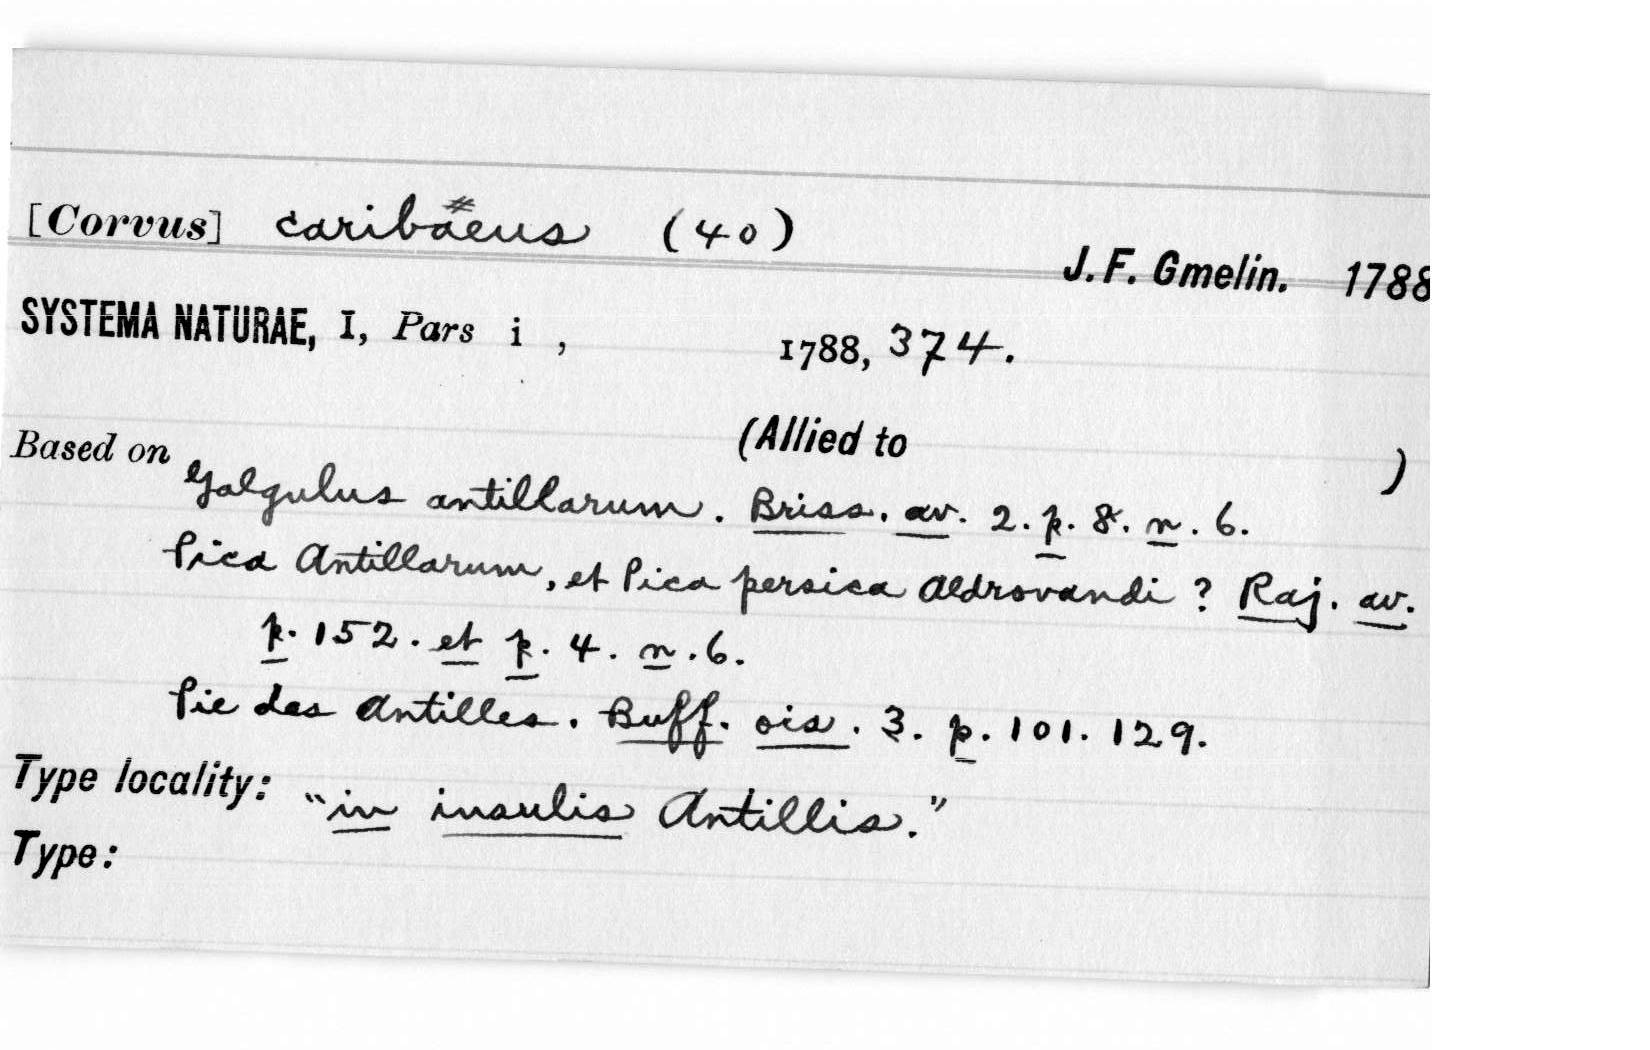 [Corvus] caribaeus (40)
J. F. Gmelin. 1788
SYSTEMA NATURAE, I, Pars i , 1788, 374.
(Allied to )
Based on
Galgulus antillarum. Briss. av. 2. p. 8. n. 6.
Pica Antillarum, et Pica persica Aldrovandi? Raj. av.
p. 152. et p. 4. n. 6.
Pie des Antilles. Buff. ois. 3. p. 101. 129.
Type locality: "in insulis Antillis."
Type: